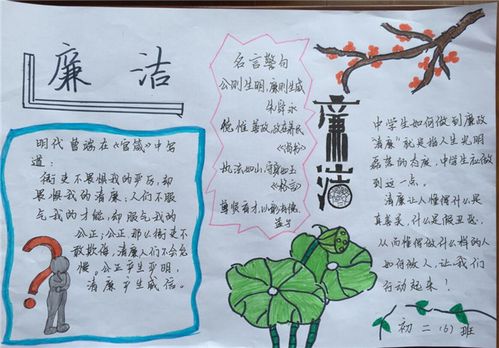 廉 洁
明代曾端在《官箴》中写
道：
衙吏不畏惧我的严厉，却
畏惧我的清廉，人们不服
气我的才能，却服气我的
公正；公正那么衙吏不
敢欺侮，清廉人们不会怠
慢。公正产生严明，
清廉产生威信。
名言警句
公则生明，廉则生威
朱舜水
德惟善政，政在养民
《尚书》
执法如山，守身如玉
《格言》
尊贤有才，以彰有德
孟子
廉洁
中学生如何做到廉政
"清廉"就是指人生光明
磊落的态度，中学生应做
到这一点。
清廉让人懂得什么是
真善美，什么是假丑恶，
从而懂得做什么样的人
如何做人，让我们
行动起来！
初二（6）班